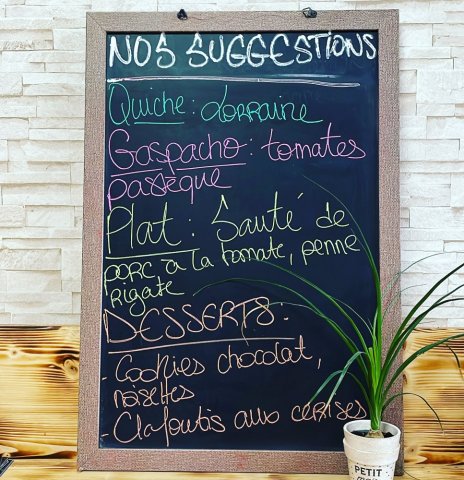 NOS SUGGESTIONS
Quiche : Lorraine
Gaspacho : tomates
pastèque
Plat : Sauté de
porc à la tomate, penne
rigate
DESSERTS :
- Cookies chocolat,
noisettes
Clafoutis aux cerises
PETIT